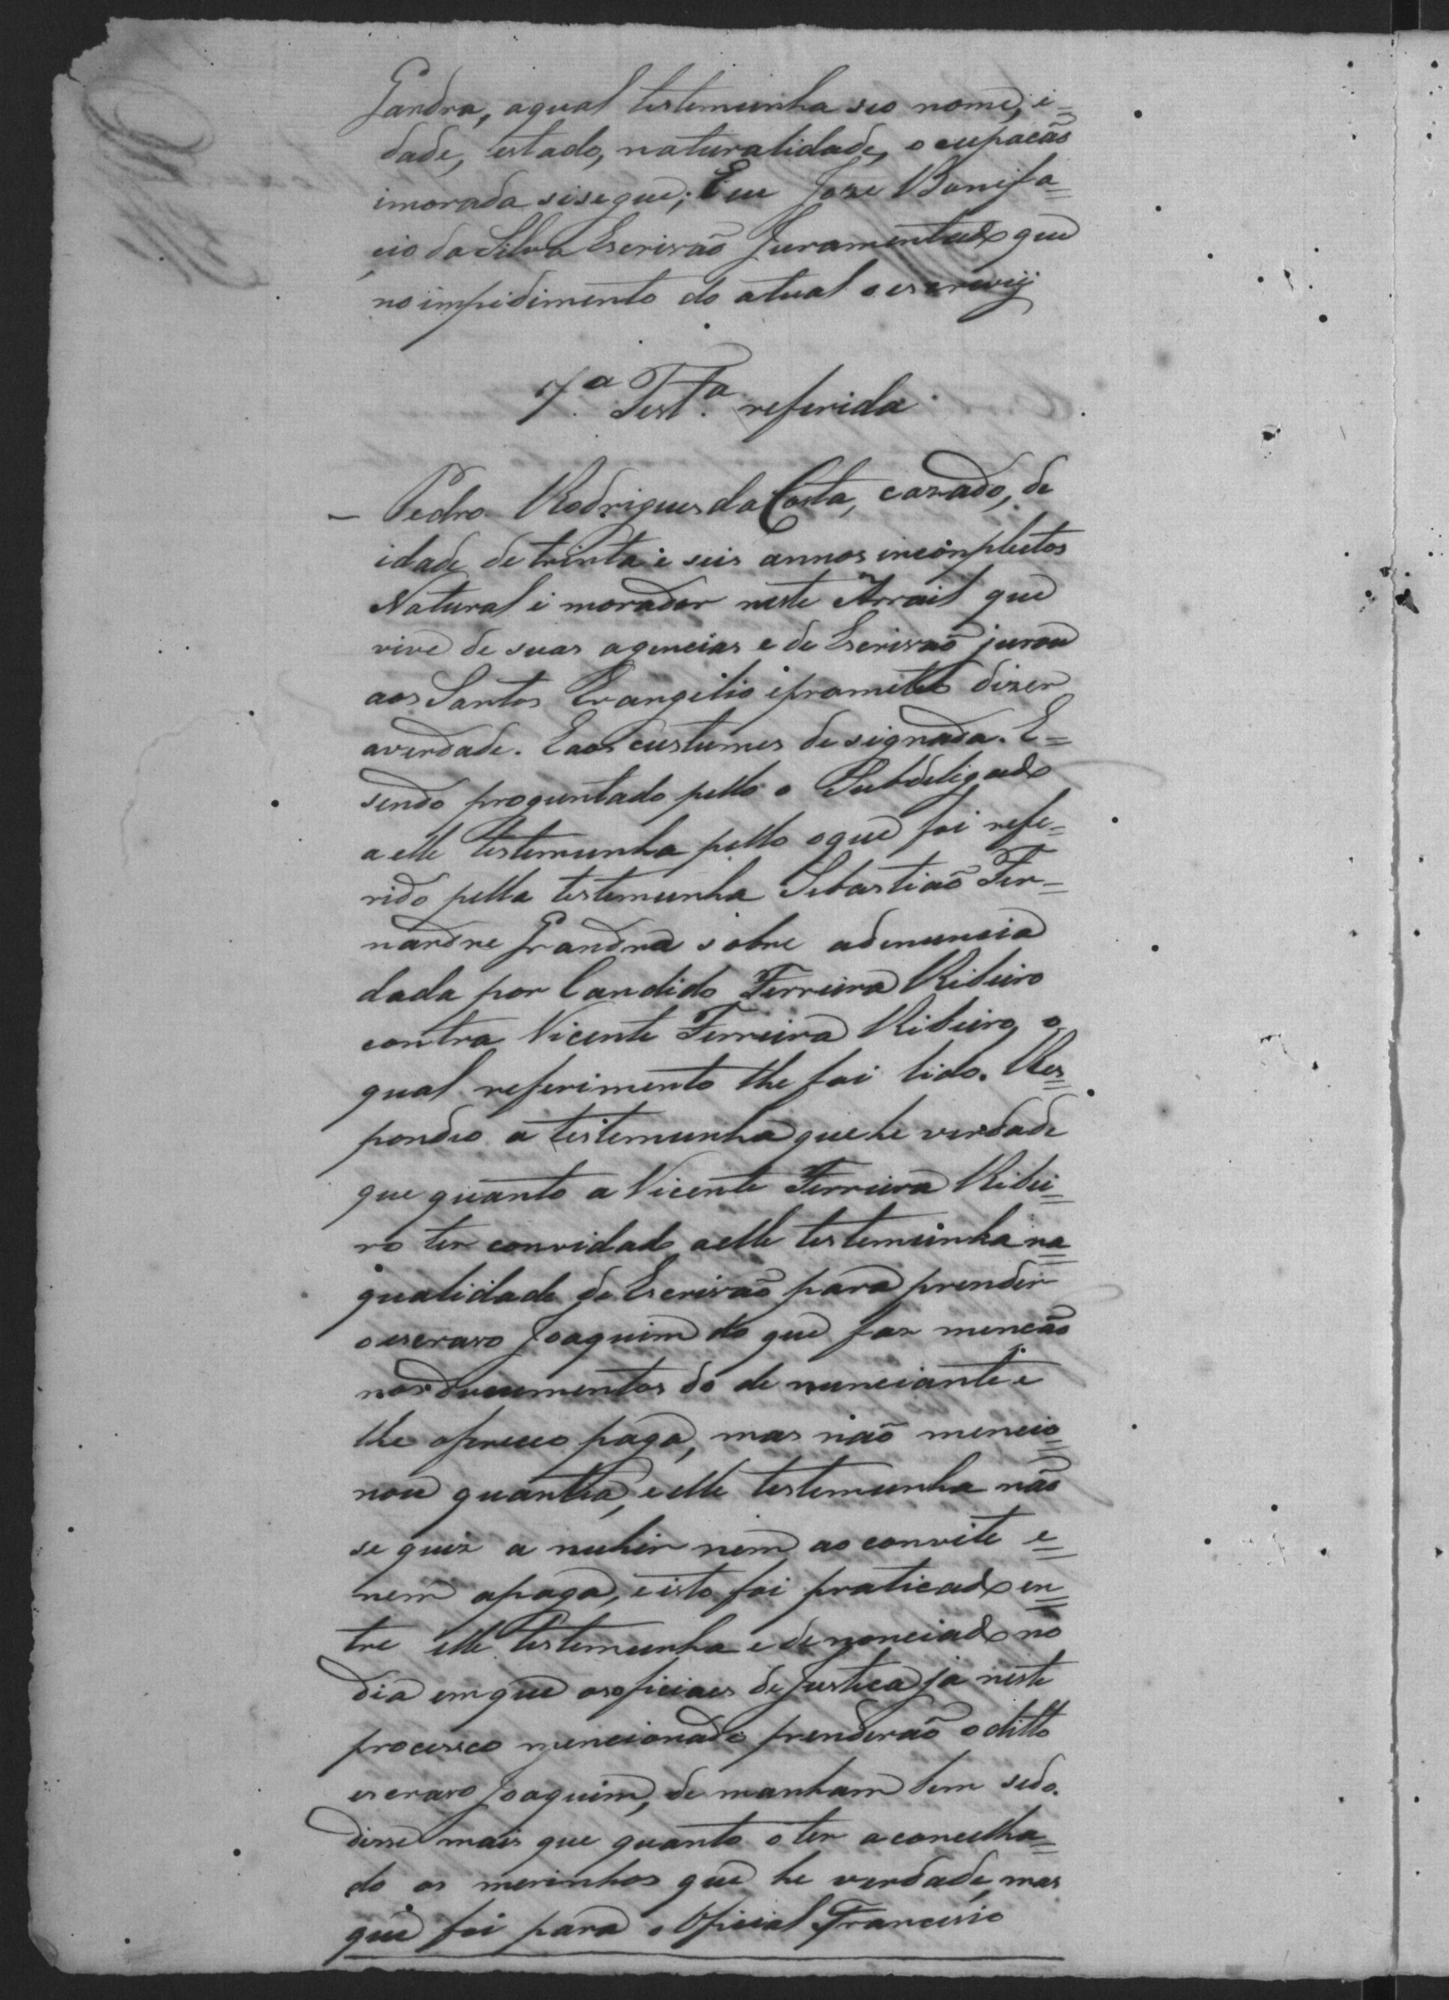 Gandra, aqual testemunha seo nome, i=
dade, estado, naturalidade, ocupacão
imorada sisegue; Eu Joze Bonifa=
cio da Silva Escrivão Juramentado que
no impidimento do atual o escrevij
7.ª Test.ª referida
— Pedro Rodrigues da Costa, cazado, de
idade de trinta e seis annos incompletos
Natural i morador neste Arrail que
vive de suas agencias e de Escrivão jurou
aos Santos Evangelio iprometeo dizer
averdade. Eaos custumes designada. E=
sendo proguntado pello o Subdeligado
a elle testemunha pello oque foi refe=
rido pella testemunha Sebastião Fer=
nandre Grandra sobre adenuncia
dada por Candido Ferreira Ribeiro
contra Vicente Ferreira Ribeiro, o
qual referimento lhe foi lido. Res=
pondeo a testemunha que he verdade
que quanto a Vicente Ferreira Ribei=
ro ter convidado aelle testemunha na
qualidade de Escrivão para prender
o escravo Joaquim do que faz mencão
nos documentos do denunciante e
lhe ofereceo paga, mas não mencio=
nou quantia, e elle testemunha não
se quiz a nuhir nem ao convite e=
nem apaga, e isto foi praticado en=
tre elle testemunha e denonciado no
dia em que osoficiaes de Justica ja neste
processo mencionado prenderão o ditto
escravo Joaquim, de manham bem sedo.
disse mais que quanto o ter aconcelha=
do os meirinhos que he verdade, mas
que foi para o Oficial Francisco